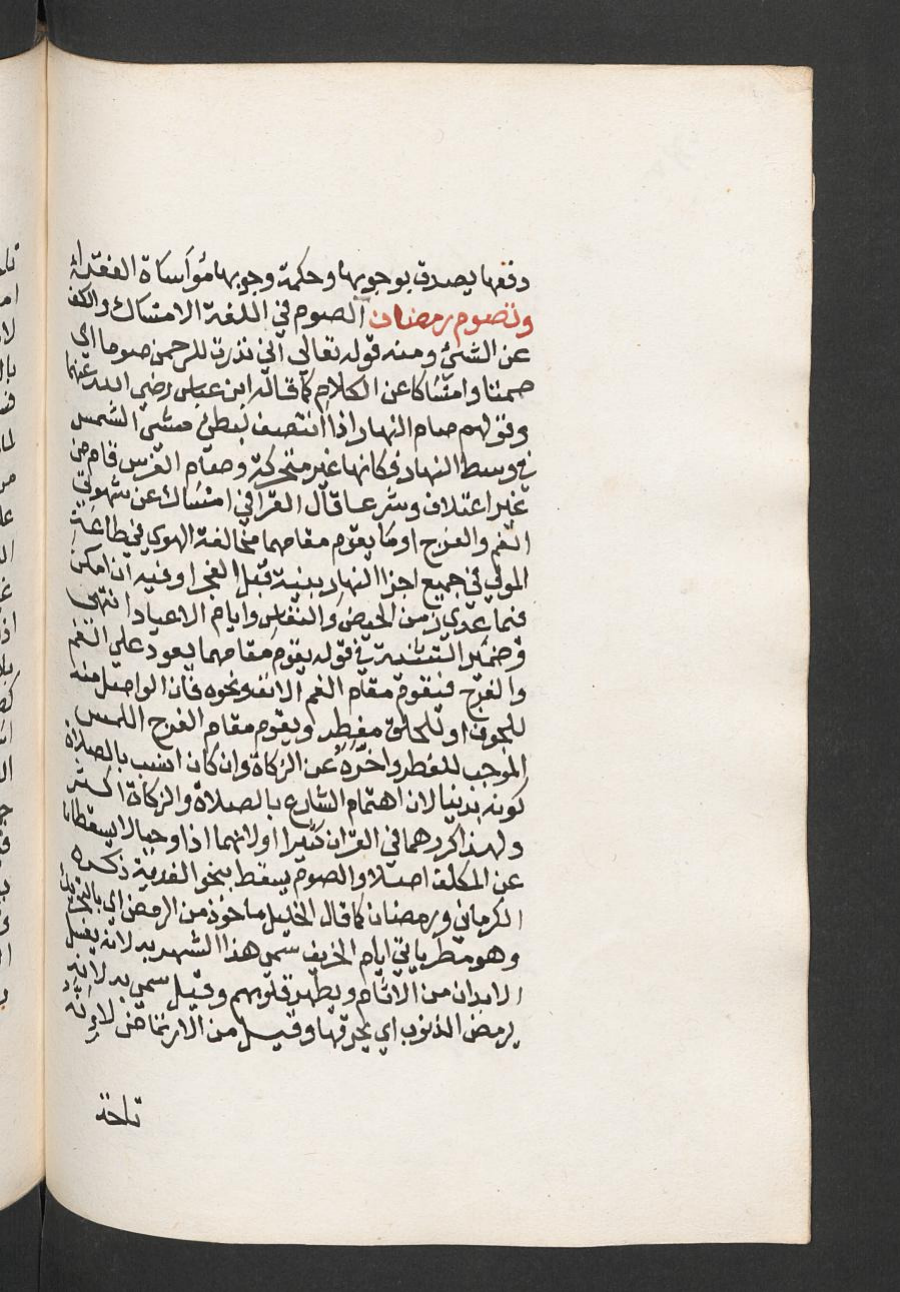 دفعها يصدق بوجوبها وحكمة وجوبها مؤاساة الفقراء
وتصوم رمضان الصوم في اللغة الامساك والكف
عن الشئ ومنه قوله تعالى اني نذرت للرحمن صوما اي
صمتا وامساكا عن الكلام كما قاله ابن عباس رضي الله عنهما
وقولهم صام النهار اذا انتصف لبطئ مشى الشمس
في وسط النهار فكانها غير متحركة وصام الفرس قام من
غير اعتلاف وشرعا قال القرافي امساك عن شهوتي
الفم والفرج او ما يقوم مقامهما مخالفة الهوي في طاعة
المولى في جميع اجزا النهار بنية قبل الفجر او فيه ان امكن
فيما عدي زمن الحيض والنفاس وايام الاعياد انتهى
وضمير التثنية في قوله يقوم مقامهما يعود على الفم
والفرج فيقوم مقام الفم الانف ونحوه فان الواصل منه
للجوف او للحلق مفطر ويقوم مقام الفرج اللمس
الموجب للفطر واخره عن الزكاة وان كان انسب بالصلاة
كونه بدنيا لان اهتمام الشارع بالصلاة والزكاة اكثر
ولهذا كررهما في القران كثيرا او لانهما اذا وجبا لا يسقطان
عن المكلف اصلا والصوم يسقط بنحو الفدية ذكره
الكرماني ورمضان كما قال الخليل ماخوذ من الرمض اي بالتحريك
وهو مطر ياتي ايام الخريف سمى هذا الشهر به لانه يغسل
الابدان من الاثام ويطهر قلوبهم وقيل سمي به لانه
يرمض الذنوب اي يحرقها وقيل من الارتماض لانه